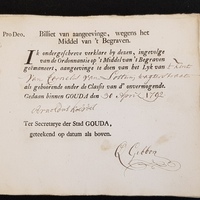 Pro Deo.
Billiet van aangeevinge, wegens het
Middel van 't Begraven.
IK ondergeschreve verklare by dezen, ingevolge
van de Ordonnantie op 't Middel van 't Begraven
geëmaneert, aangeevinge te doen van het Lyk van
Van Cornelis van
als gehoorende onder de Classis van d' onvermogende.
Gedaan binnen GOUDA, den 30 April 1792
Arnoldus
Ter Secretarye der Stad GOUDA,
geteekend op datum als boven.